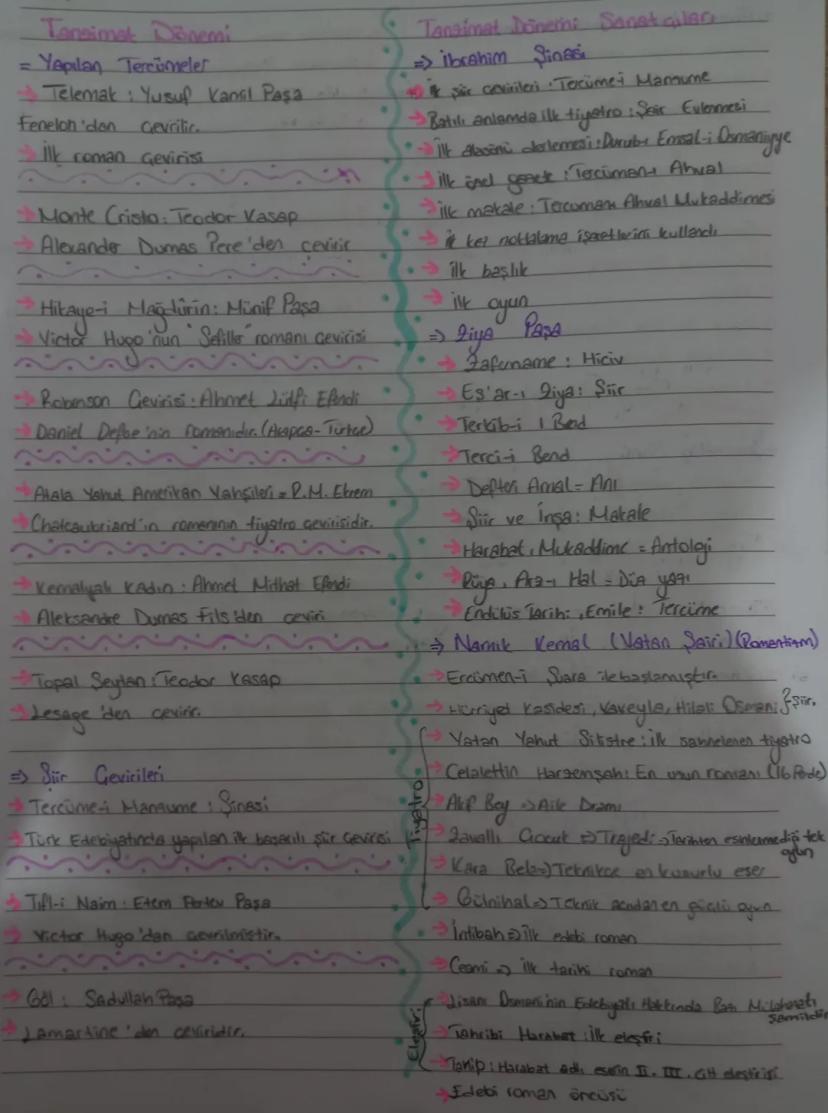 Tanzimat Dönemi
= Yapılan Tercümeler
→ Telemak : Yusuf Kamil Paşa
Fenelon'dan çevrilir.
→ İlk roman çevirisi
→ Monte Cristo : Teodor Kasap
→ Alexander Dumas Pere'den çevirir
→ Hikaye-i Mağdurin : Münif Paşa
→ Victor Hugo'nun "Sefiller" romanı çevirisi
→ Robenson Çevirisi : Ahmet Lütfi Efendi
→ Daniel Defoe'nin romanıdır. (Arapça-Türkçe)
→ Atala Yahut Amerikan Vahşileri = R.M. Ekrem
→ Chateaubriand'ın romanının tiyatro çevirisidir.
→ Kemalyalı Kadın : Ahmet Mithat Efendi
→ Aleksandre Dumas Fils'den çeviri
→ Topal Şeytan : Teodor Kasap
→ Lesage'den çevirir.
⇒ Şiir Çevirileri
→ Tercüme-i Manzume : Şinasi
→ Türk Edebiyatında yapılan ilk başarılı şiir çevirisi
→ Tıfl-ı Naim : Etem Pertev Paşa
→ Victor Hugo'dan çevrilmiştir.
→ Göl : Sadullah Paşa
→ Lamartine'den çeviridir.
Tanzimat Dönemi Sanatçıları
⇒ İbrahim Şinasi
→ ilk şiir çevirileri : Tercüme-i Manzume
→ Batılı anlamda ilk tiyatro : Şair Evlenmesi
→ İlk atasözü derlemesi : Durub-ı Emsal-i Osmaniyye
→ ilk özel gazete : Tercüman-ı Ahval
→ ilk makale : Tercuman-ı Ahval Mukaddimesi
→ ilk kez noktalama işaretlerini kullandı
→ ilk başlık
→ ilk oyun
⇒ Ziya Paşa
→ Zafername : Hiciv
→ Eş'ar-ı Ziya : Şiir
→ Terkib-i Bend
→ Terci-i Bend
→ Defteri Amal = Anı
→ Şiir ve İnşa : Makale
→ Harabat, Mukaddime = Antoloji
→ Rüya, Arz-ı Hal = Düz yazı
→ Endülüs Tarihi, Emile : Tercüme
⇒ Namık Kemal (Vatan Şairi) (Romantizm)
→ Encümen-i Şuara ile başlamıştır.
→ Hürriyet Kasidesi, Vaveyla, Hilali Osmani } Şiir.
Tiyatro
→ Vatan Yahut Silistre : ilk sahnelenen tiyatro
→ Celalettin Harzemşah : En uzun romanı (16 Perde)
→ Akif Bey ⇒ Aile Dramı
→ Zavallı Çocuk ⇒ Trajedi → Tarihten esinlenmediği tek oyun
→ Kara Bela ⇒ Teknikçe en kusurlu eser
→ Gülnihal ⇒ Teknik açıdan en güçlü oyun
→ İntibah ⇒ ilk edebi roman
→ Cezmi ⇒ ilk tarihi roman
Eleştiri
→ Lisanı Osmani'nin Edebiyatı Hakkında Bazı Mülahazatı Şamildir
→ Tahribi Harabat : ilk eleştiri
→ Takip : Harabat adlı eserin II. III. eleştirisi
→ Edebi roman öncüsü